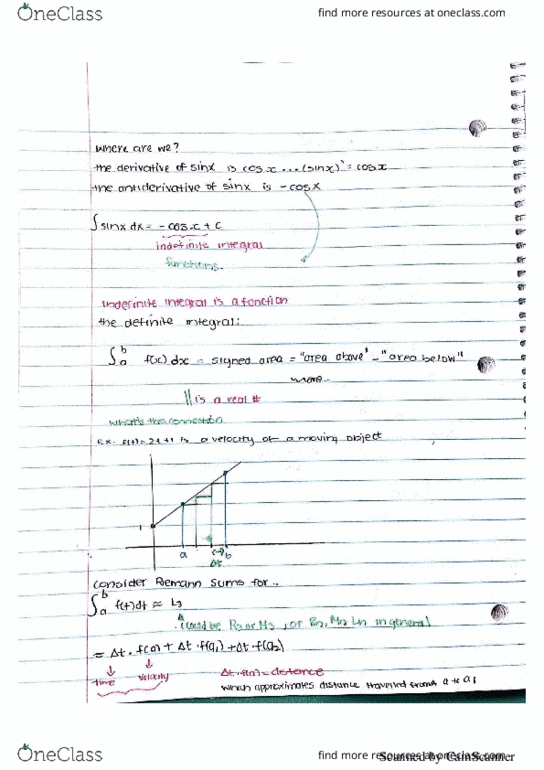 OneClass
find more resources at oneclass.com
where are we?
the derivative of sinx is cosx ... (sinx)' = cosx
the antiderivative of sinx is -cosx
∫sinx dx = -cosx + c
indefinite integral
functions
indefinite integral is a function
the definite integral:
∫ₐᵇ f(x) dx = signed area = "area above" - "area below"
is a real #
what's the connection
Ex. f(t)=2t+1 is a velocity of a moving object
1
a
b
Δt
consider Riemann Sums for..
∫ₐᵇ f(t)dt ≈ L₃
could be R₃ or M₃, or Rn, Mn Ln in general
= Δt · f(a) + Δt · f(a₁) + Δt · f(a₂)
time
velocity
Δt · f(a) = distance
which approximates distance travelled from a to a₁
OneClass
find more resources at oneclass.com
Scanned by CamScanner